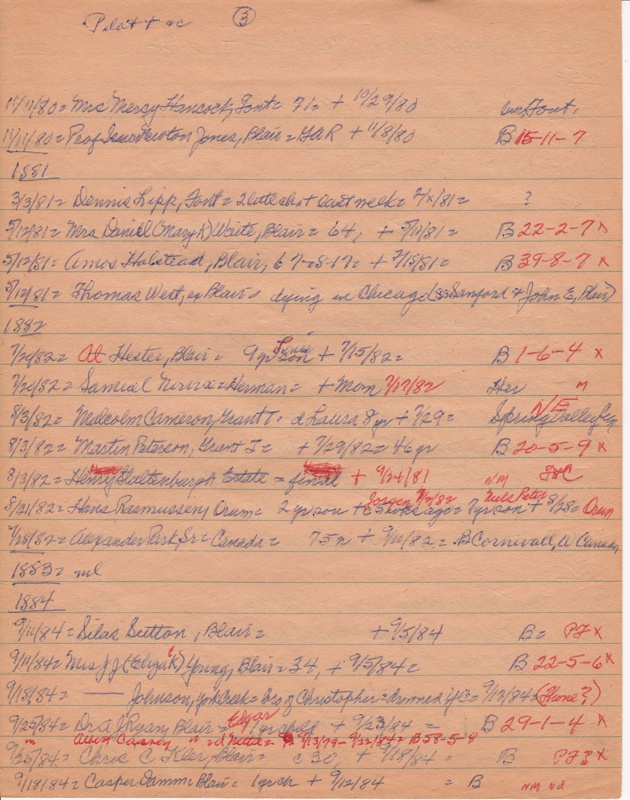 Pilot + nc ③
11/11/80 = Mrs Mercy Hancock, Font = 71 = + 10/29/80 Font.
11/11/80 = Prof Isaac Newton Jones, Blair = GAR + 11/8/80 B 15-11-7
1881
3/3/81 = Dennis Lipp, Font = 2 late ch + last week = 2/x/81 = ?
5/12/81 = Mrs Daniel (Mary K) Waite, Blair = 64, + 5/11/81 = B 22-2-7 x
5/12/81 = Amos Halstead, Blair, 67-5-17 = + 2/15/81 = B 39-8-7 x
5/12/81 = Thomas West, ex Blair = dying in Chicago (Sanford & John E, Blair)
1882
7/20/82 = Al Hester, Blair = 9 yr son + 7/15/82 = B 1-6-4 x
7/20/82 = Samuel = Herman = + Mom 7/17/82 Her m
8/3/82 = Malcolm Cameron, Grant T = d Laura 8 yr + 7/29 = Spring Valley NE
8/3/82 = Martin Peterson, Grant T = + 7/29/82 = 46 yr B 20-5-9 x
8/3/82 = Henry Staltenburgh Estate = final + 9/24/81 NM
8/31/82 = Hans Rasmussen, Orum = 2 yr son + = 7 yr son + 8/28 = Orum
Niels Peter
7/28/82 = Alexander Park, Sr = Canada = 75 n + = B Cornwall, Canada
1883 = nl
1884
9/11/84 = Silas Sutton, Blair = + 9/5/84 B = PF x
9/11/84 = Mrs J J (Eliza K) Young, Blair = 34, + 9/5/84 = B 22-5-6 x
9/18/84 = — Johnson, York Creek = bro of Christopher = 9/13/84 = (Home?)
9/25/84 = Dr A J Ryan, Blair = Edgar + 9/23/84 = B 29-1-4 x
" " = d Nettie = 9/13/79 - 9/22/84 = B 58-5-8
9/25/84 = Chris C Kler, Blair = c 30, + 9/18/84 = B PF? x
9/18/84 = Casper Damm = Blair = 1 yr ch + 9/12/84 = B NM nd